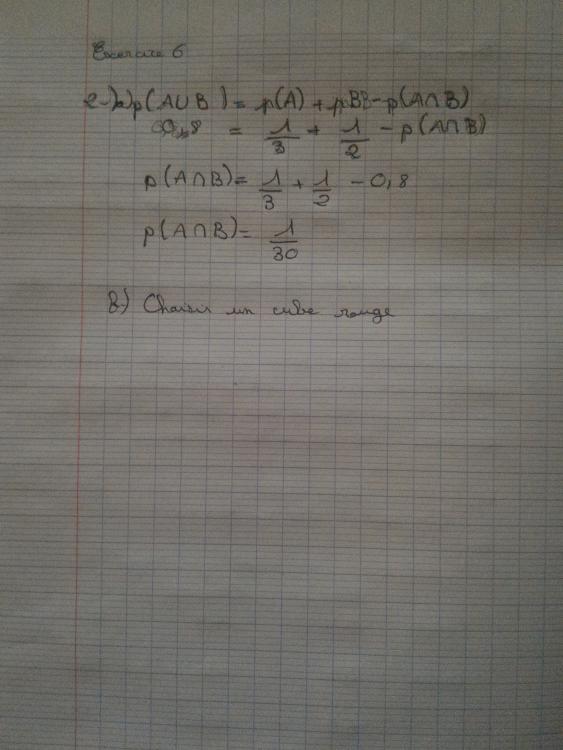 Exercice 6
2-) a) p(A∪B) = p(A) + p(B) - p(A∩B)
0,8 = 1/3 + 1/2 - p(A∩B)
p(A∩B) = 1/3 + 1/2 - 0,8
p(A∩B) = 1/30
b) Choisir un cube rouge